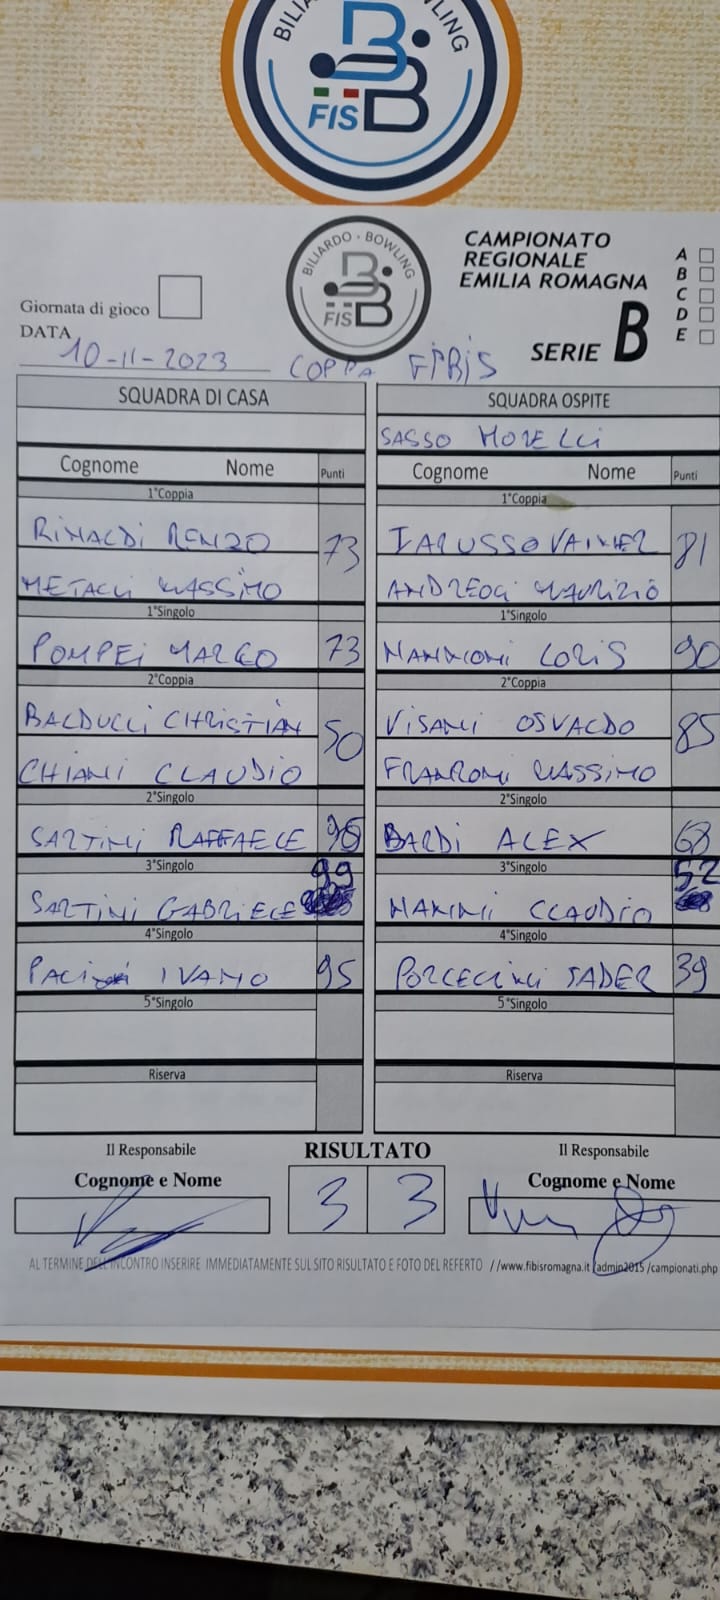 BILIARDO BOWLING
FISBB
BILIARDO · BOWLING
FISBB
CAMPIONATO
REGIONALE
EMILIA ROMAGNA
SERIE B
A
B
C
D
E
Giornata di gioco
DATA
10-11-2023 COPPA FIBIS
SQUADRA DI CASA SQUADRA OSPITE
SASSO MORELLI
Cognome Nome Punti Cognome Nome Punti
1°Coppia 1°Coppia
RINALDI RENZO 73 IARUSSO VAINER 81
METALLI MASSIMO ANDREOLI MAURIZIO
1°Singolo 1°Singolo
POMPEI MARCO 73 LORIS 90
2°Coppia 2°Coppia
BALDUCCI CHRISTIAN 50 VISANI OSVALDO 85
CHIANI CLAUDIO FRANZONI MASSIMO
2°Singolo 2°Singolo
SARTINI RAFFAELE BARDI ALEX 68
3°Singolo 3°Singolo
SARTINI GABRIELE 99 NANNI CLAUDIO 52
4°Singolo 4°Singolo
IVANO 95 PORCELLINI SADER 39
5°Singolo 5°Singolo
Riserva Riserva
Il Responsabile RISULTATO Il Responsabile
Cognome e Nome Cognome e Nome
3 3
AL TERMINE DELL'INCONTRO INSERIRE IMMEDIATAMENTE SUL SITO RISULTATO E FOTO DEL REFERTO //www.fibisromagna.it /admin2015 /campionati.php